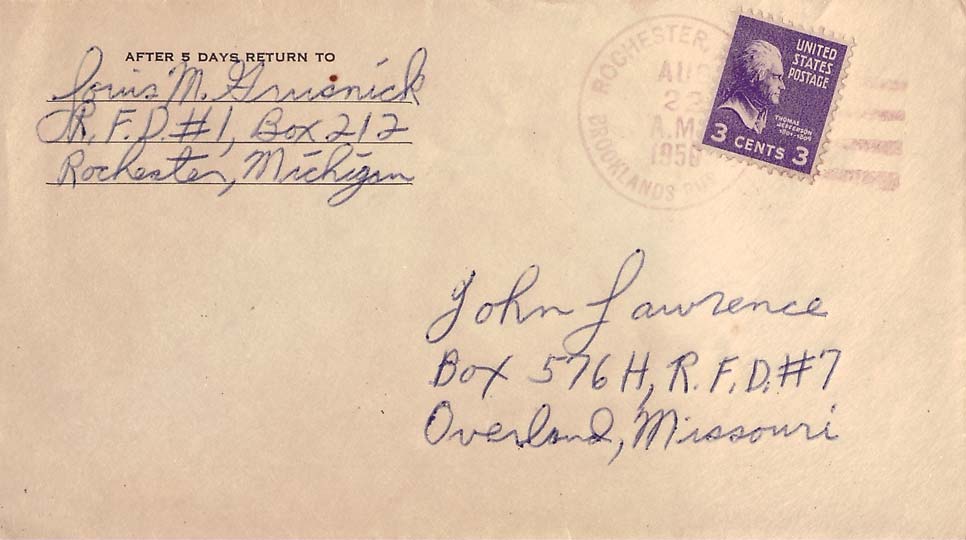 AFTER 5 DAYS RETURN TO
Louis M. Grusnick
R.F.D. #1, Box 212
Rochester, Michigan
ROCHESTER,
AUG
A.M.
BROOKLANDS
UNITED
STATES
POSTAGE
THOMAS
JEFFERSON
1801-1809
3 CENTS 3
John Lawrence
Box 576 H, R.F.D. #7
Overland, Missouri